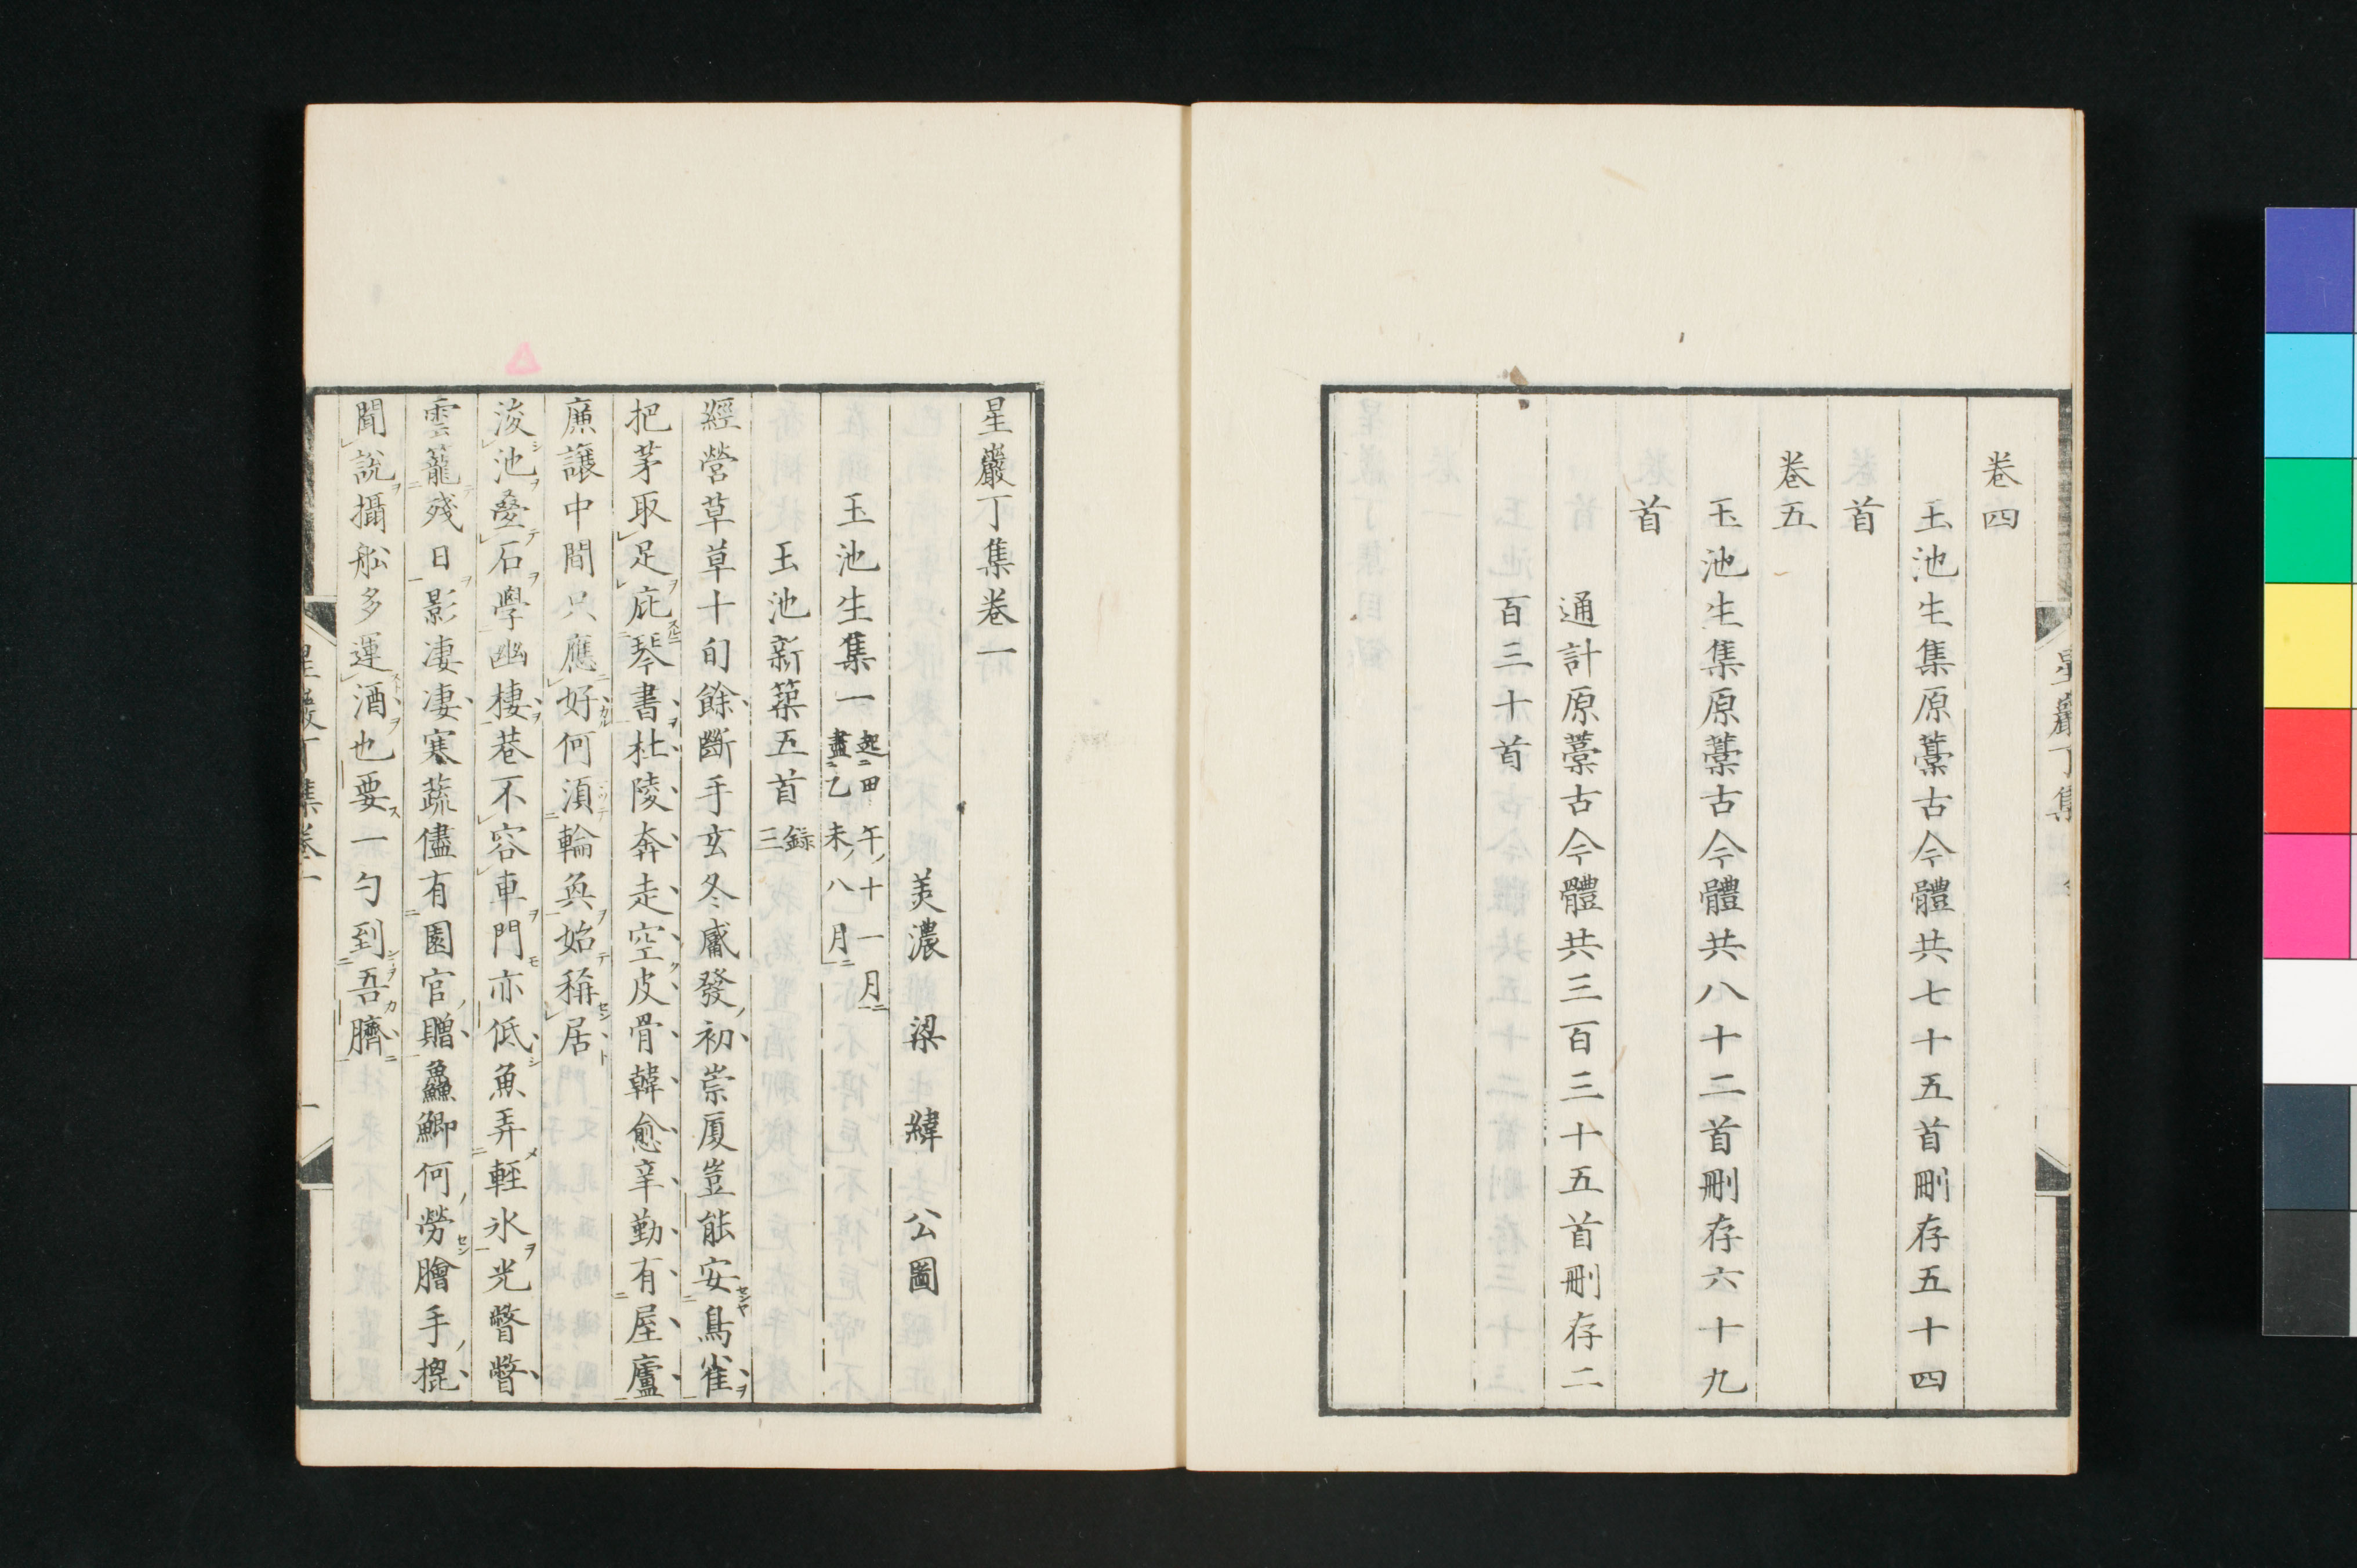 卷四
玉池生集原藁古今體共七十五首刪存五十四
首
卷五
玉池生集原藁古今體共八十二首刪存六十九
首
通計原藁古今體共三百三十五首刪存二
百三十首
星巖丁集
星巖丁集卷一
美濃 梁 緯 公圖
玉池生集一 起甲午十一月
盡乙未八月
玉池新築五首 錄三
經營草草十旬餘斷手玄冬觱發初崇厦豈能安鳥雀
把茅取足庇琴書杜陵奔走空皮骨韓愈辛勤有屋廬
廉讓中間只應好何須輪奐始稱居
浚池壘石學幽棲巷不容車門亦低魚弄輕氷光瞥瞥
雲籠殘日影凄凄寒蔬儘有園官贈鱻鯽何勞膾手提
聞說攝船多運酒也要一勺到吾臍
星巖丁集卷一
一